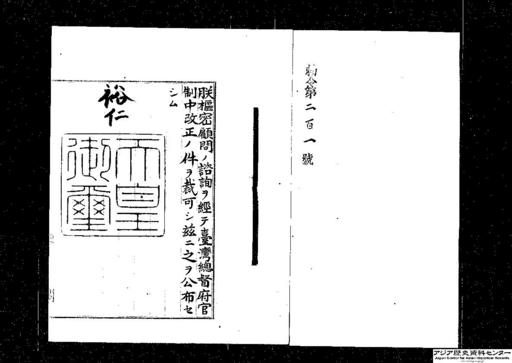 勅令第二百一號
朕樞密顧問ノ諮詢ヲ經テ臺灣總督府官
制中改正ノ件ヲ裁可シ茲ニ之ヲ公布セ
シム
裕仁
天皇
御璽
アジア歴史資料センター
Japan Center for Asian Historical Records